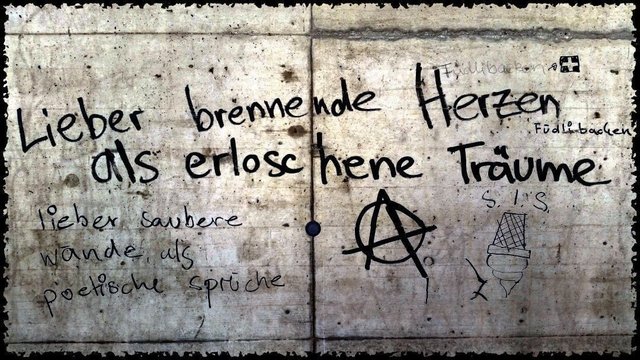 Füdlibacken
Lieber brennende Herzen
Füdlibacken
als erloschene Träume
S.I.S
A
lieber saubere
wände als
poetische sprüche